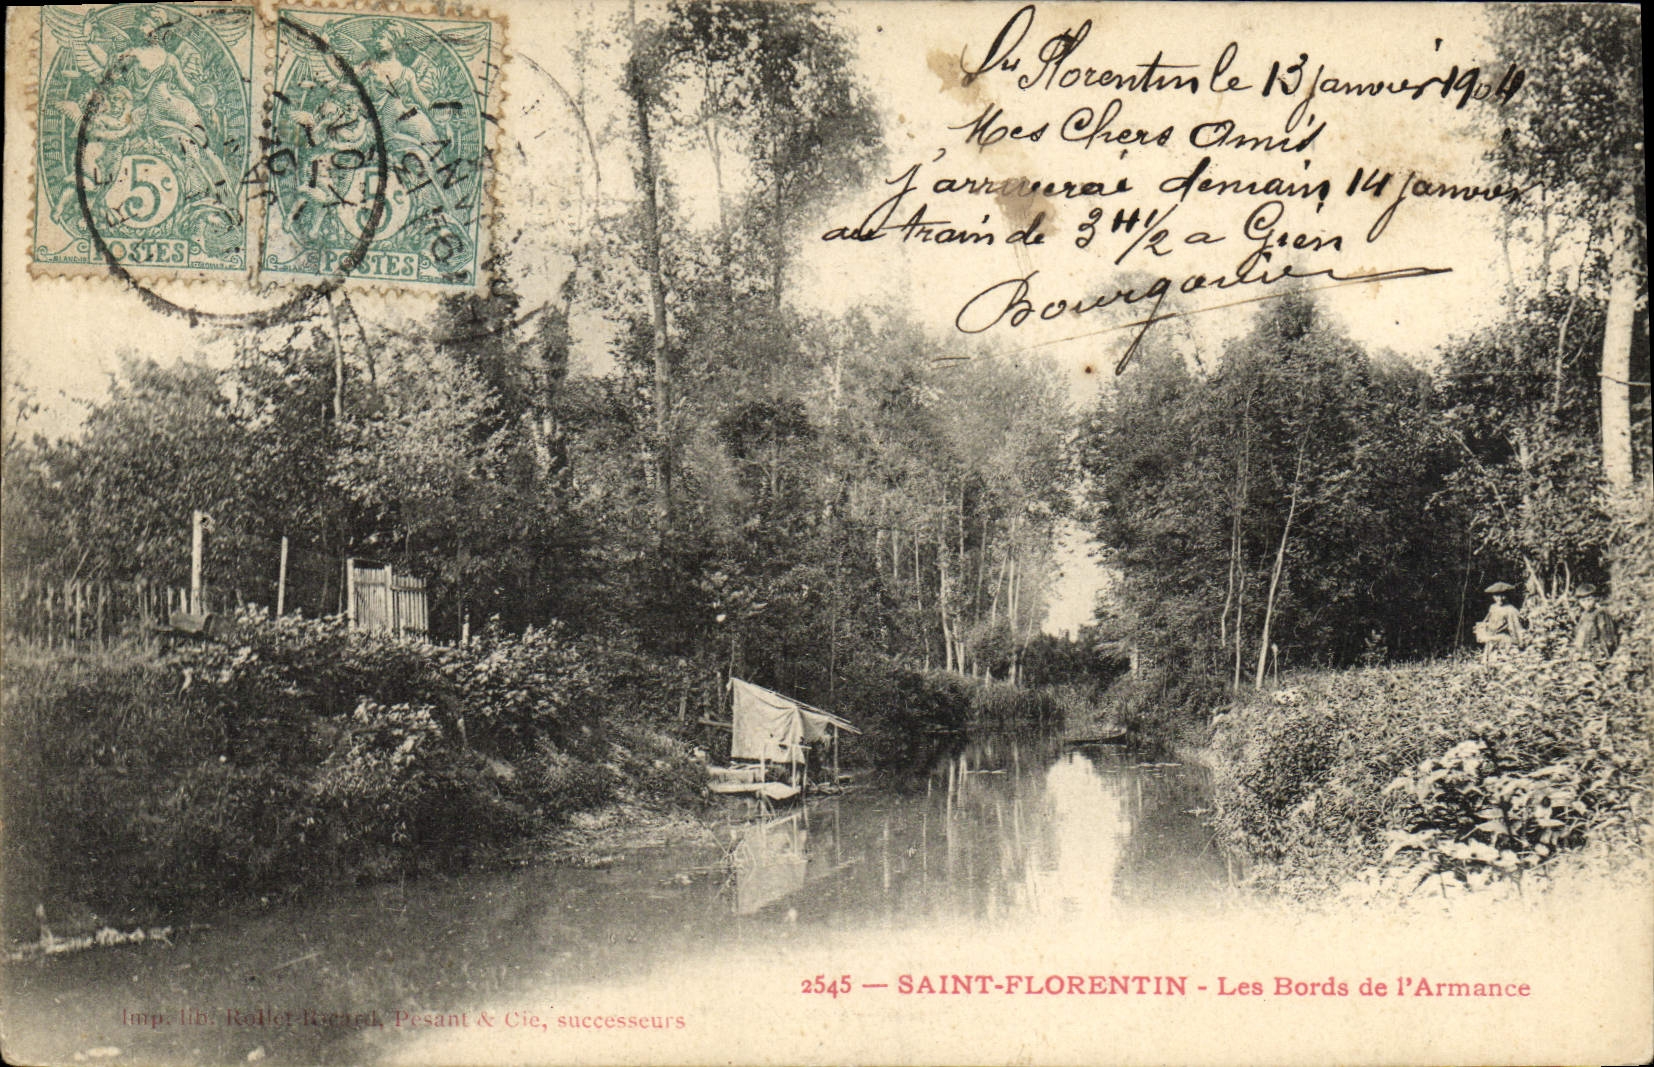 St Florentin le 13 janvier 1904
Mes Chers Amis
j'arriverai demain 14 janvier
au train de 3 H 1/2 a Gien
5c
POSTES
5c
POSTES
2545 — SAINT-FLORENTIN - Les Bords de l'Armance
Imp. lib. Rollet-Ricard, Pesant & Cie, successeurs